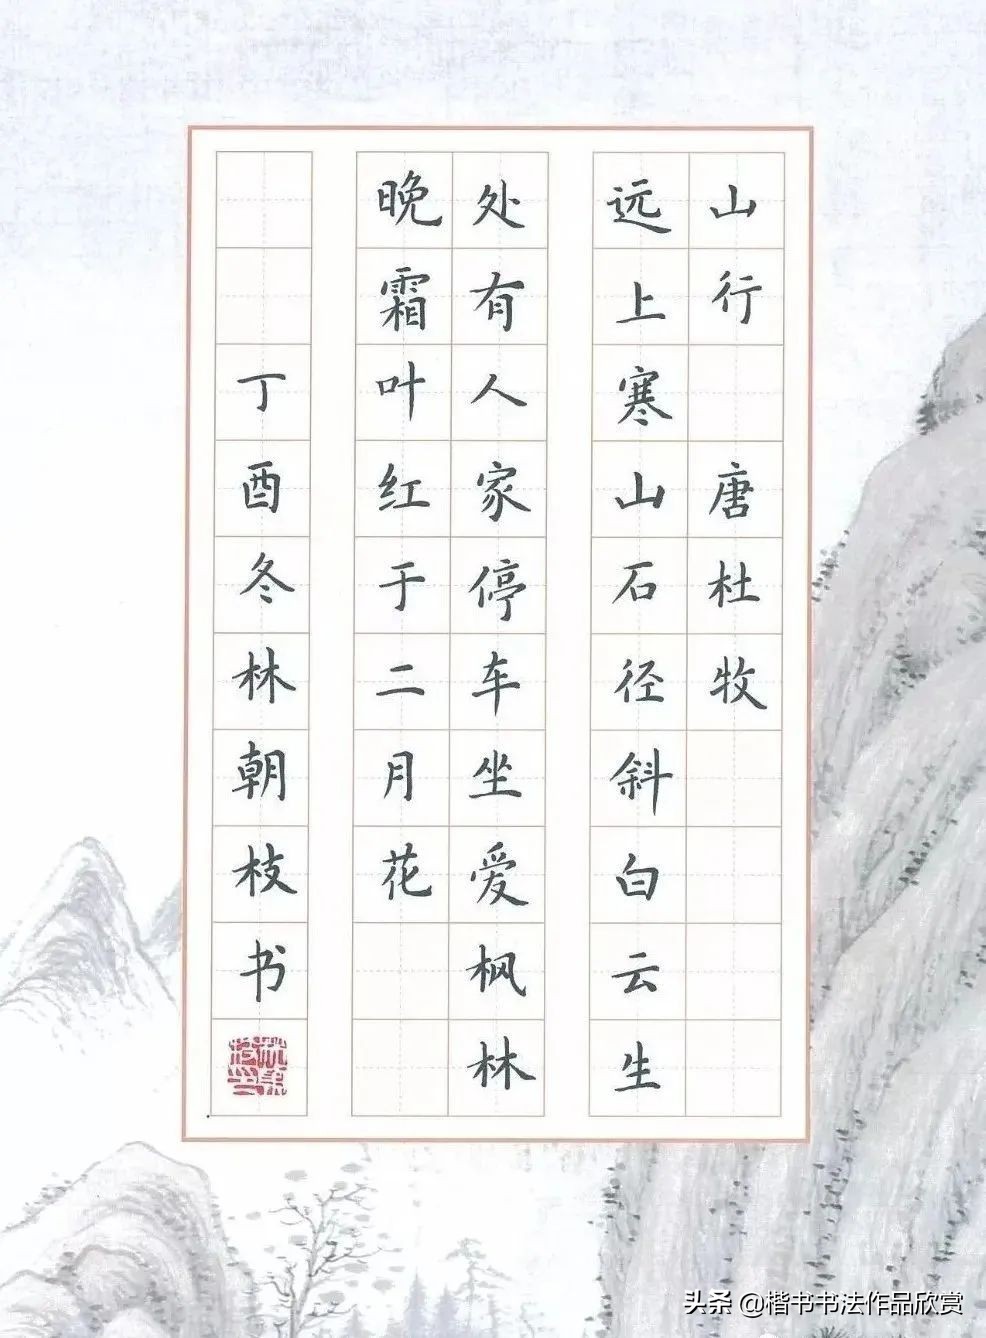 山行 唐杜牧
远上寒山石径斜白云生
处有人家停车坐爱枫林
晚霜叶红于二月花
丁酉冬林朝枝书
头条 @楷书书法作品欣赏